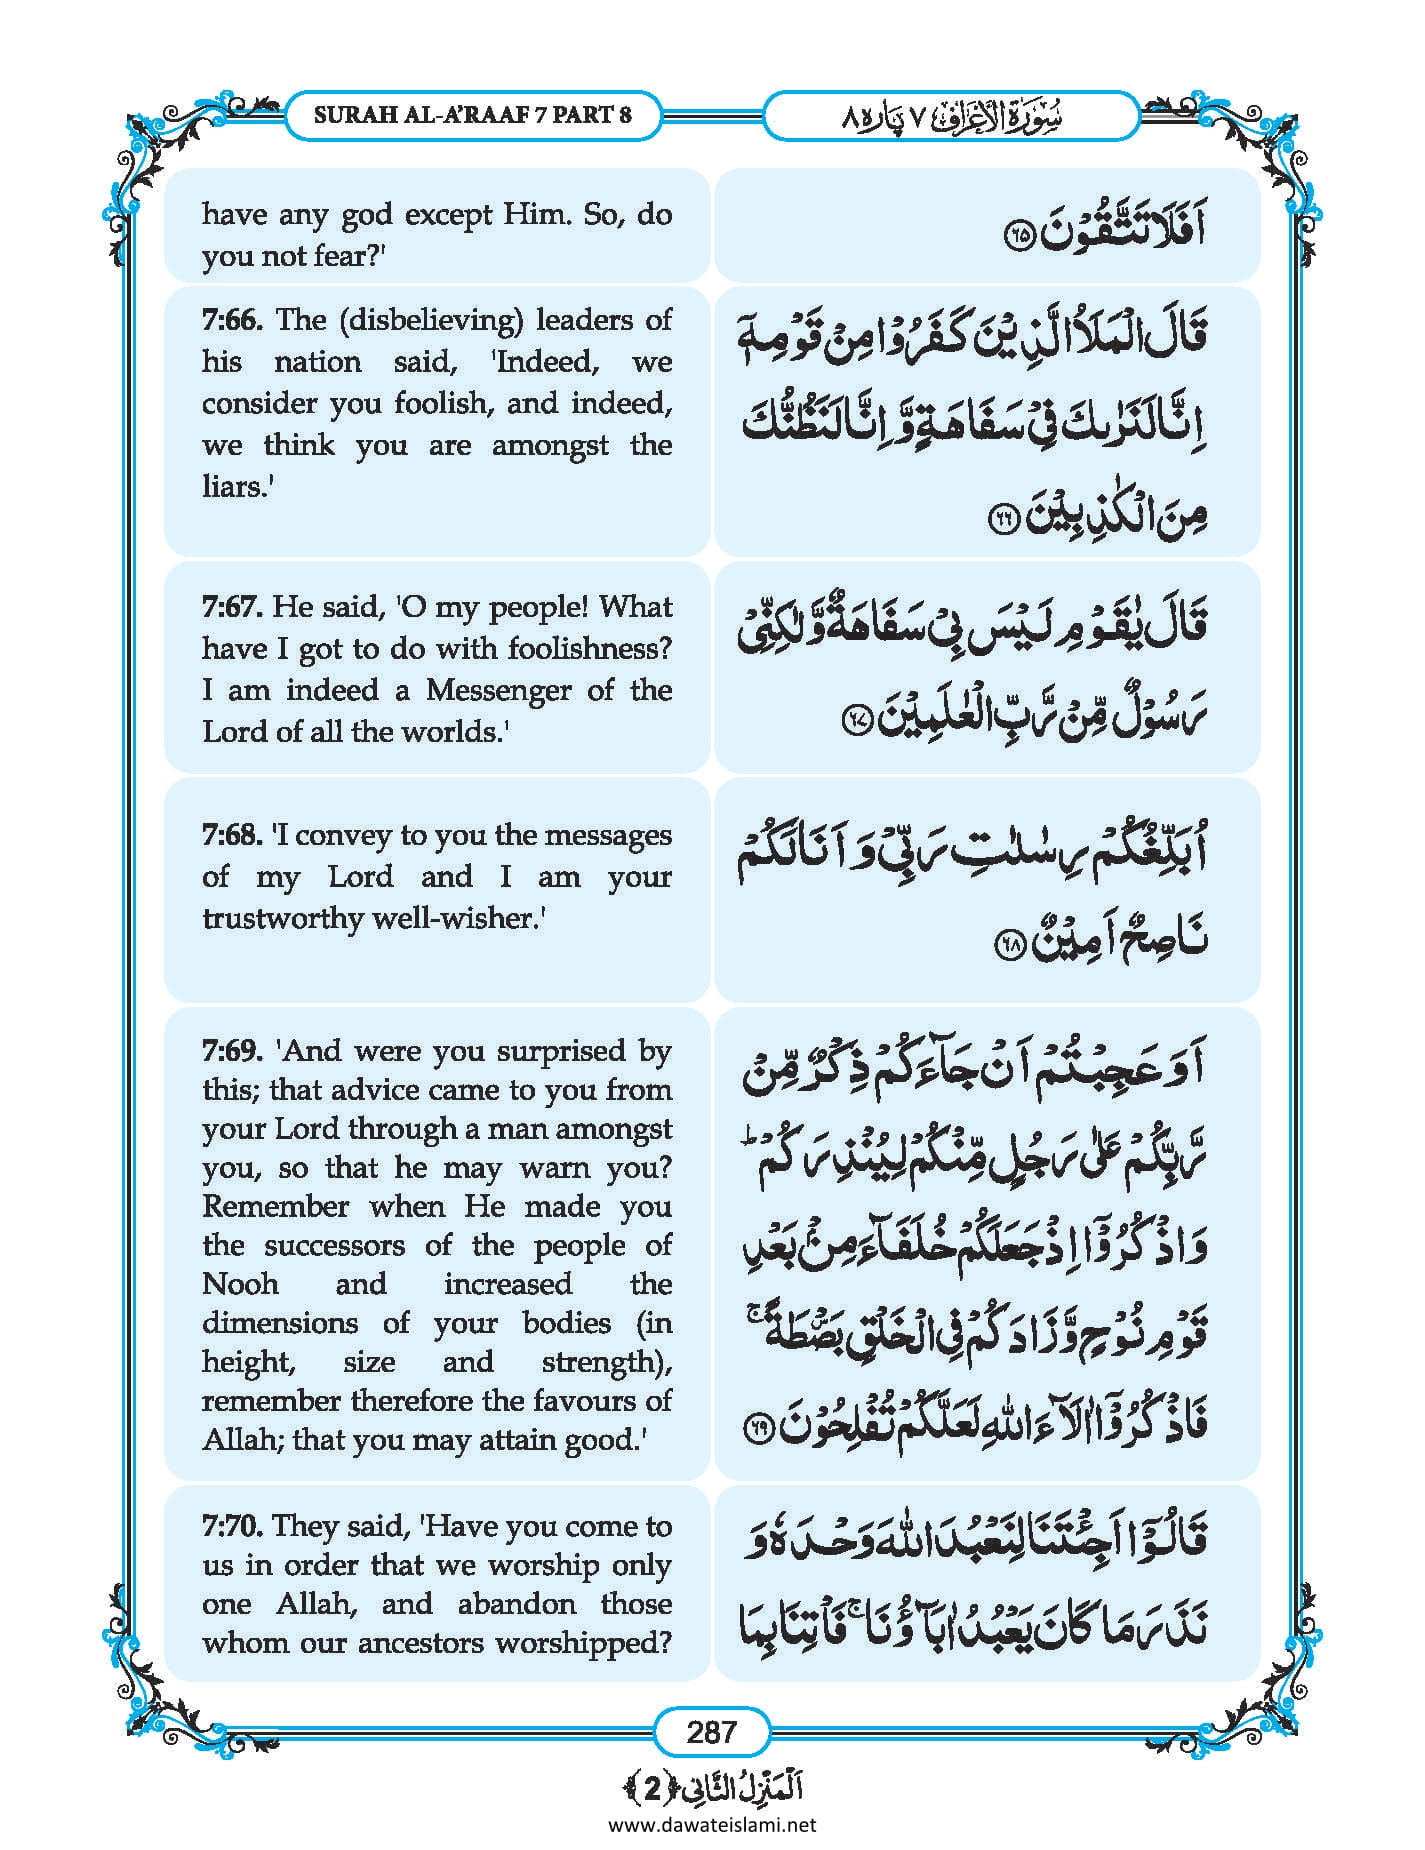 SURAH AL-A’RAAF 7 PART 8
سُوۡرَۃُ الۡاَعۡرَاف ۷ پارہ ۸
have any god except Him. So, do
you not fear?'
اَفَلَا تَتَّقُوۡنَ ﴿۶۵﴾
7:66. The (disbelieving) leaders of
his nation said, 'Indeed, we
consider you foolish, and indeed,
we think you are amongst the
liars.'
قَالَ الۡمَلَاُ الَّذِیۡنَ کَفَرُوۡا مِنۡ قَوۡمِہٖۤ
اِنَّا لَنَرٰىکَ فِیۡ سَفَاہَۃٍ وَّ اِنَّا لَنَظُنُّکَ
مِنَ الۡکٰذِبِیۡنَ ﴿۶۶﴾
7:67. He said, 'O my people! What
have I got to do with foolishness?
I am indeed a Messenger of the
Lord of all the worlds.'
قَالَ یٰقَوۡمِ لَیۡسَ بِیۡ سَفَاہَۃٌ وَّ لٰکِنِّیۡ
رَسُوۡلٌ مِّنۡ رَّبِّ الۡعٰلَمِیۡنَ ﴿۶۷﴾
7:68. 'I convey to you the messages
of my Lord and I am your
trustworthy well-wisher.'
اُبَلِّغُکُمۡ رِسٰلٰتِ رَبِّیۡ وَ اَنَا لَکُمۡ
نَاصِحٌ اَمِیۡنٌ ﴿۶۸﴾
7:69. 'And were you surprised by
this; that advice came to you from
your Lord through a man amongst
you, so that he may warn you?
Remember when He made you
the successors of the people of
Nooh and increased the
dimensions of your bodies (in
height, size and strength),
remember therefore the favours of
Allah; that you may attain good.'
اَوَ عَجِبۡتُمۡ اَنۡ جَآءَکُمۡ ذِکۡرٌ مِّنۡ
رَّبِّکُمۡ عَلٰی رَجُلٍ مِّنۡکُمۡ لِیُنۡذِرَکُمۡ ؕ
وَ اذۡکُرُوۡۤا اِذۡ جَعَلَکُمۡ خُلَفَآءَ مِنۡۢ بَعۡدِ
قَوۡمِ نُوۡحٍ وَّ زَادَکُمۡ فِی الۡخَلۡقِ بَصۜۡطَۃً ۚ
فَاذۡکُرُوۡۤا اٰلَآءَ اللہِ لَعَلَّکُمۡ تُفۡلِحُوۡنَ ﴿۶۹﴾
7:70. They said, 'Have you come to
us in order that we worship only
one Allah, and abandon those
whom our ancestors worshipped?
قَالُوۡۤا اَجِئۡتَنَا لِنَعۡبُدَ اللہَ وَحۡدَہٗ وَ
نَذَرَ مَا کَانَ یَعۡبُدُ اٰبَآؤُنَا ۚ فَاۡتِنَا بِمَا
287
اَلۡمَنۡزِلُ الثَّانِی ﴿2﴾
www.dawateislami.net